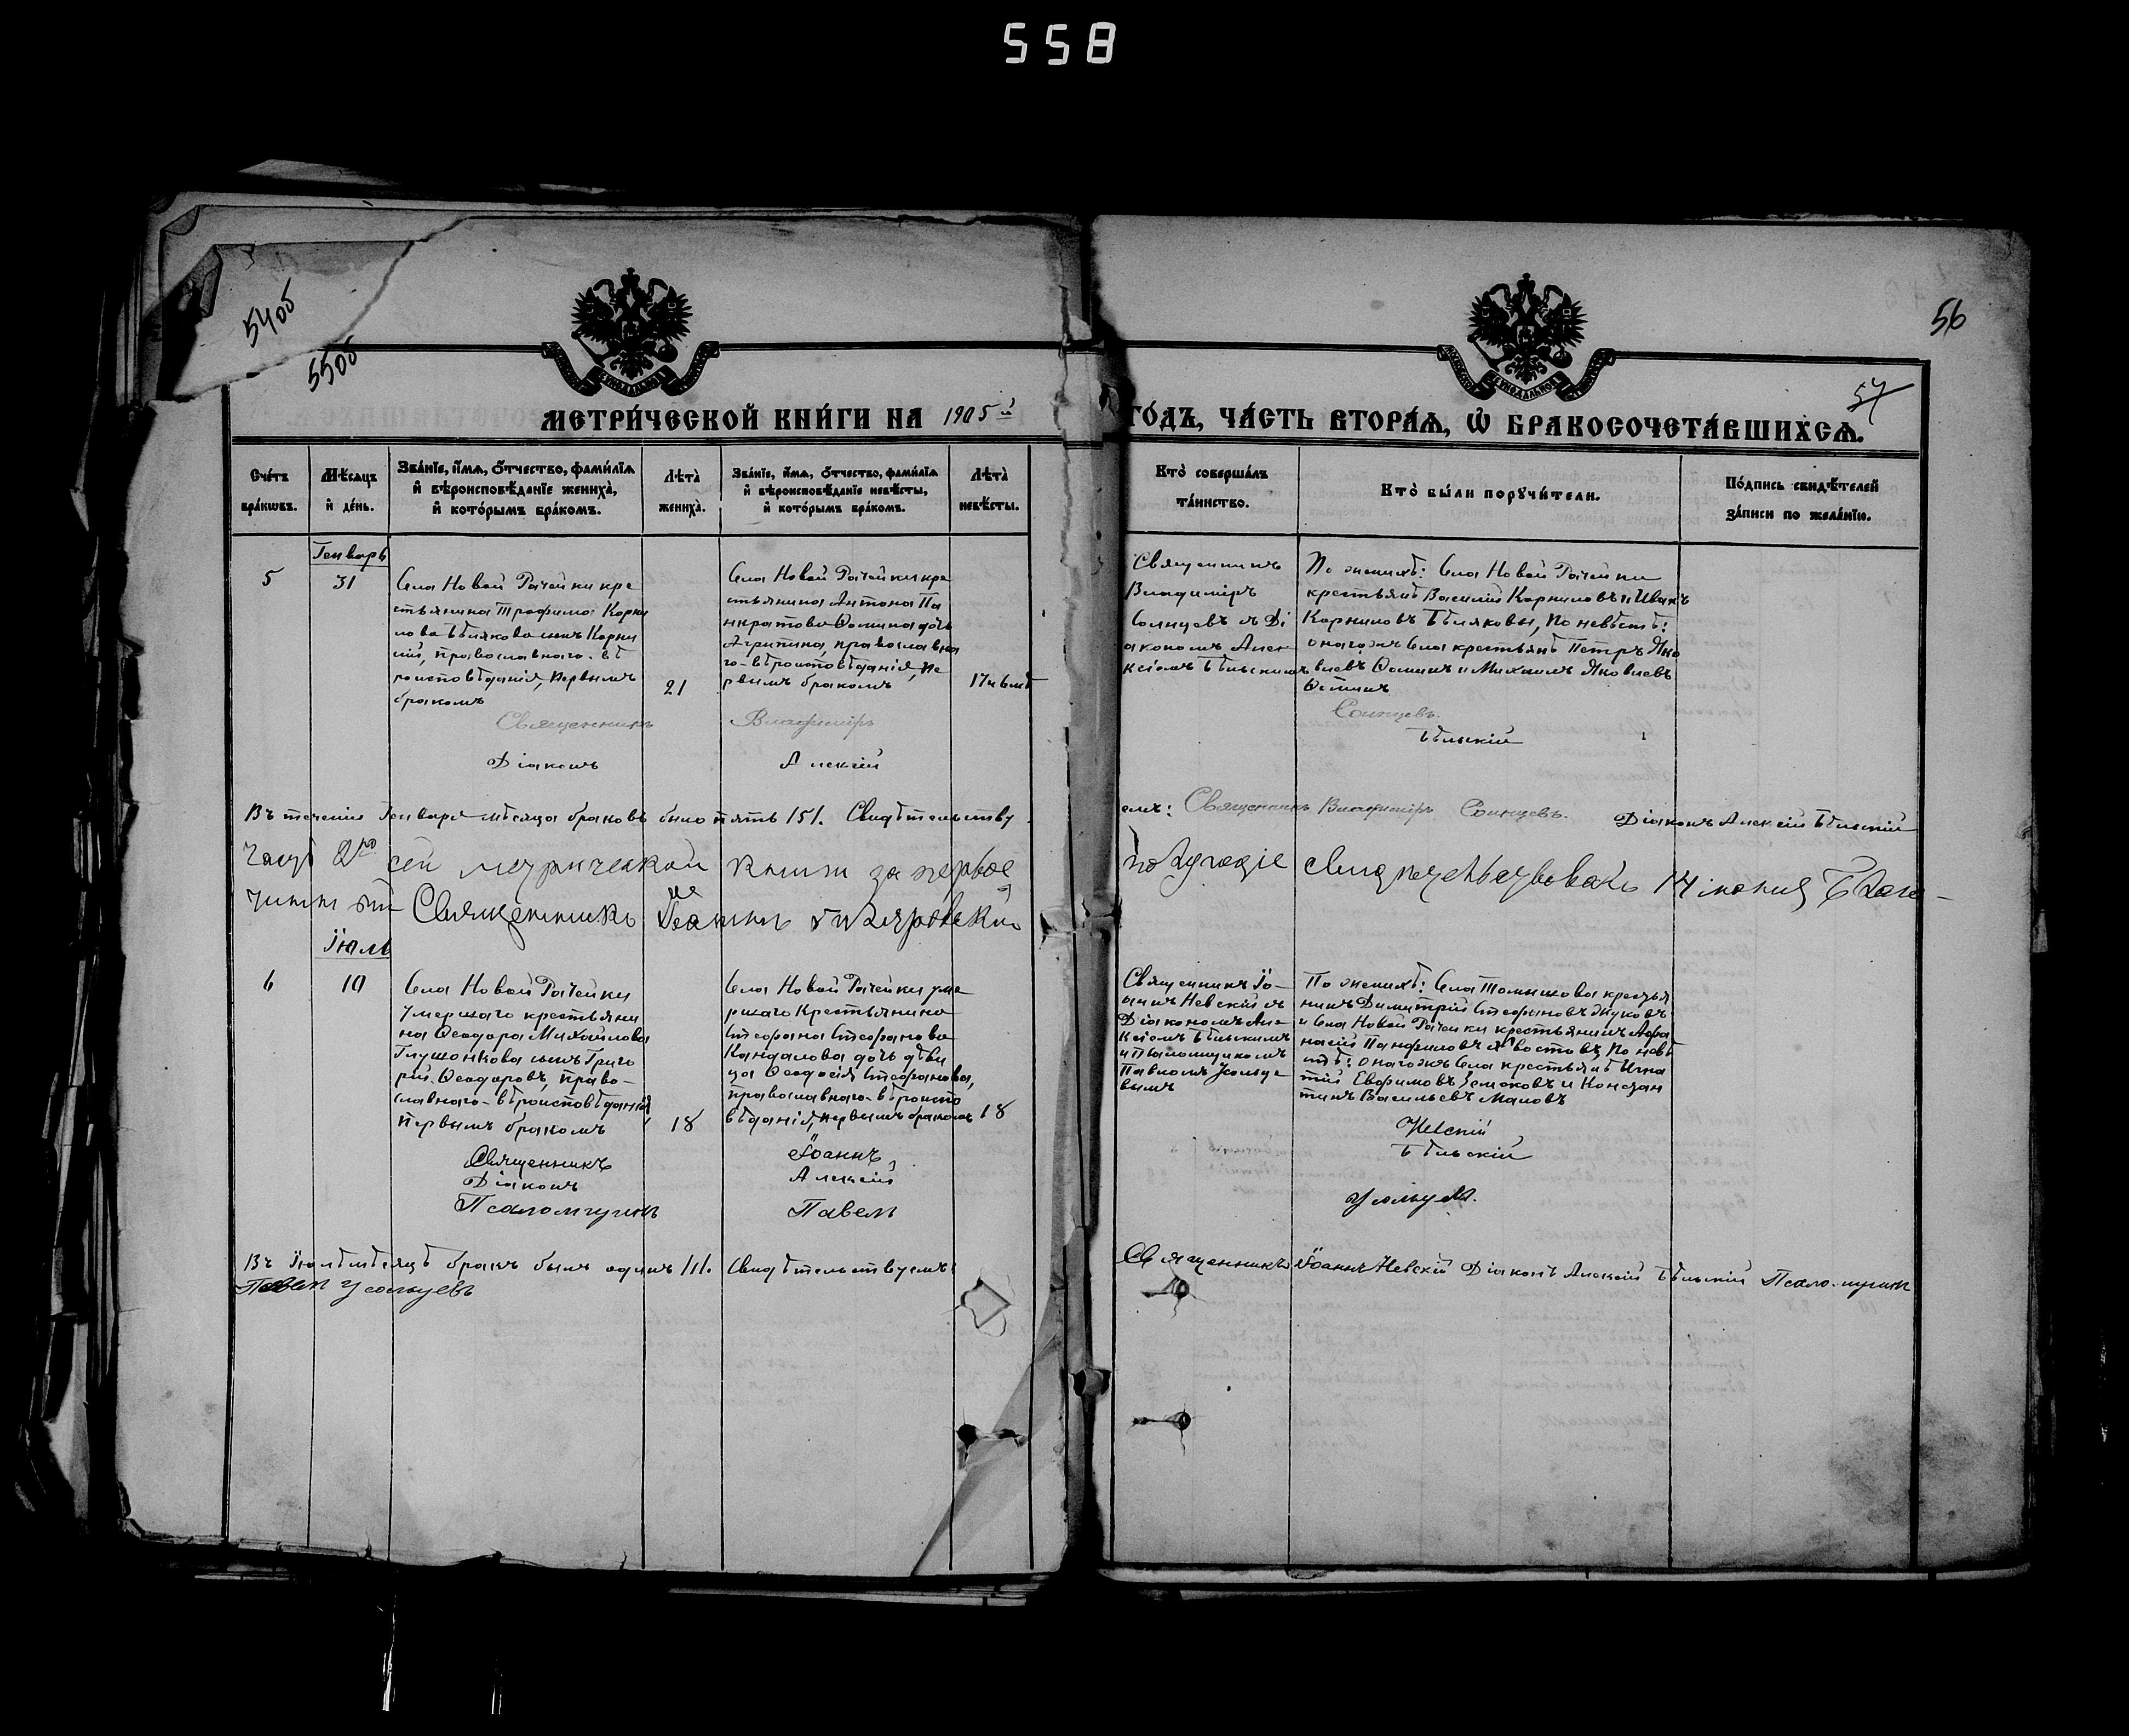 558
54об
55об
56
57
МЕТРИ́ЧЕСКОЙ КНИ́ГИ НА 1905й
ГО́ДЪ, ЧА́СТЬ ВТОРА́Ѧ, Ѡ҆ БРАКОСОЧЕТА́ВШИХСѦ.
Сче́тъ
бра́кѡвъ.
Мѣ́сѧцъ
и҆ де́нь.
Зва́нїе, и҆́мѧ, ѻ҆́тчество, фами́лїѧ
и҆ вѣроисповѣ́данїе жениха̀,
и҆ кото́рымъ бра́комъ.
Лѣта̀
жениха̀.
Зва́нїе, и҆́мѧ, ѻ҆́тчество, фами́лїѧ
и҆ вѣроисповѣ́данїе невѣ́сты,
и҆ кото́рымъ бра́комъ.
Лѣта̀
невѣ́сты.
Кто̀ соверша́лъ
та́инство.
Кто̀ бы́ли порꙋчи́тели.
По́дпись свидѣ́телей
за́писи по жела́нїю.
Генварь
5
31
Села Новой Рачейки кре
стьянина Трофима Корни
лова Бѣлякова сынъ Корни
лій, православнаго вѣ
роисповѣданія, первымъ
бракомъ
21
Села Новой Рачейки кре
стьянина Антона Па
нкратова Ѳомина дочь
Агрипина, православна
го вѣроисповѣданія, пе
рвымъ бракомъ
17 и 6 мѣ
Священникъ
Владиміръ
Солнцевъ съ Ді
акономъ Алек
сѣемъ Бѣльскимъ
По женихѣ: Села Новой Рачейки
крестьянѣ Василій Корниловъ и Иванъ
Корниловъ Бѣляковы, по невѣстѣ:
онагожъ села крестьянѣ Петръ Яко
влевъ Ѳоминъ и Михаилъ Яковлевъ
Ѳоминъ
Священникъ Владиміръ Солнцевъ.
Діаконъ Алексій Бѣльскій
Въ теченіе Генваря мѣсяца браковъ было пять /5/. Свидѣтельству
емъ: Священникъ Владиміръ Солнцевъ. Діаконъ Алексій Бѣльскій
Часть 2ю сей метрической книги за первое
полугодіе свидѣтельствовалъ 14 іюля Благо-
чинный Священникъ
Іюль
6
10
Села Новой Рачейки
умершаго крестьяни
на Ѳеодора Михайлова
Глушонкова сынъ Григо
рій Ѳеодоровъ, право-
славнаго вѣроисповѣданія
первымъ бракомъ
18
Села Новой Рачейки уме
ршаго крестьянина
Стефана Стефанова
Кандалова дочь дѣви
ца Ѳеодосія Стефанова,
православнаго вѣроиспо
вѣданія, первымъ бракомъ
18
Священникъ Іо-
аннъ Невскій съ
Діакономъ Але
ксѣемъ Бѣльскимъ
и Псаломщикомъ
Павломъ Усольце
вымъ
По женихѣ: Села Томышова крестья
нинъ Димитрій Стефановъ Жуковъ
и села Новой Рачейки крестьянинъ Аѳа
насій Панфиловъ Хвостовъ, по невѣ
стѣ: онагожъ села крестьянѣ Игна
тій Евфимовъ Земсковъ и Констан
тинъ Васильевъ Маловъ
Священникъ Іоаннъ Невскій
Діаконъ Алексій Бѣльскій
Псаломщикъ Павелъ Усольцевъ.
Въ Іюлѣ мѣсяцѣ бракъ былъ одинъ /1/. Свидѣтельствуемъ:
Священникъ Іоаннъ Невскій Діаконъ Алексій Бѣльскій Псаломщикъ
Павелъ Усольцевъ